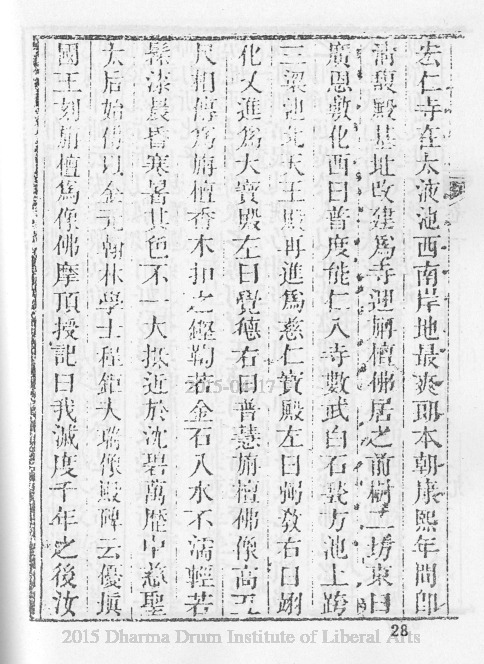 宏仁寺在太液池西南岸地最爽塏本朝康熙年間即
清馥殿基址改建為寺迎旃檀佛居之前樹二坊東曰
廣恩敷化西曰普度能仁入寺數武白石甃方池上跨
三梁池北天王殿再進為慈仁寶殿左曰弼教右曰翊
化又進為大寶殿左曰覺德右曰普慧旃檀佛像高五
尺相傳為旃檀香木扣之鏗鞫若金石入水不濡輕若
髹漆晨昏寒暑其色不一大抵近於沈碧萬歷中慈聖
太后始傅以金元翰林學士程鉅夫瑞像殿碑云優填
國王刻旃檀為像佛摩頂授記曰我滅度千年之後汝
28
2015 Dharma Drum Institute of Liberal Arts